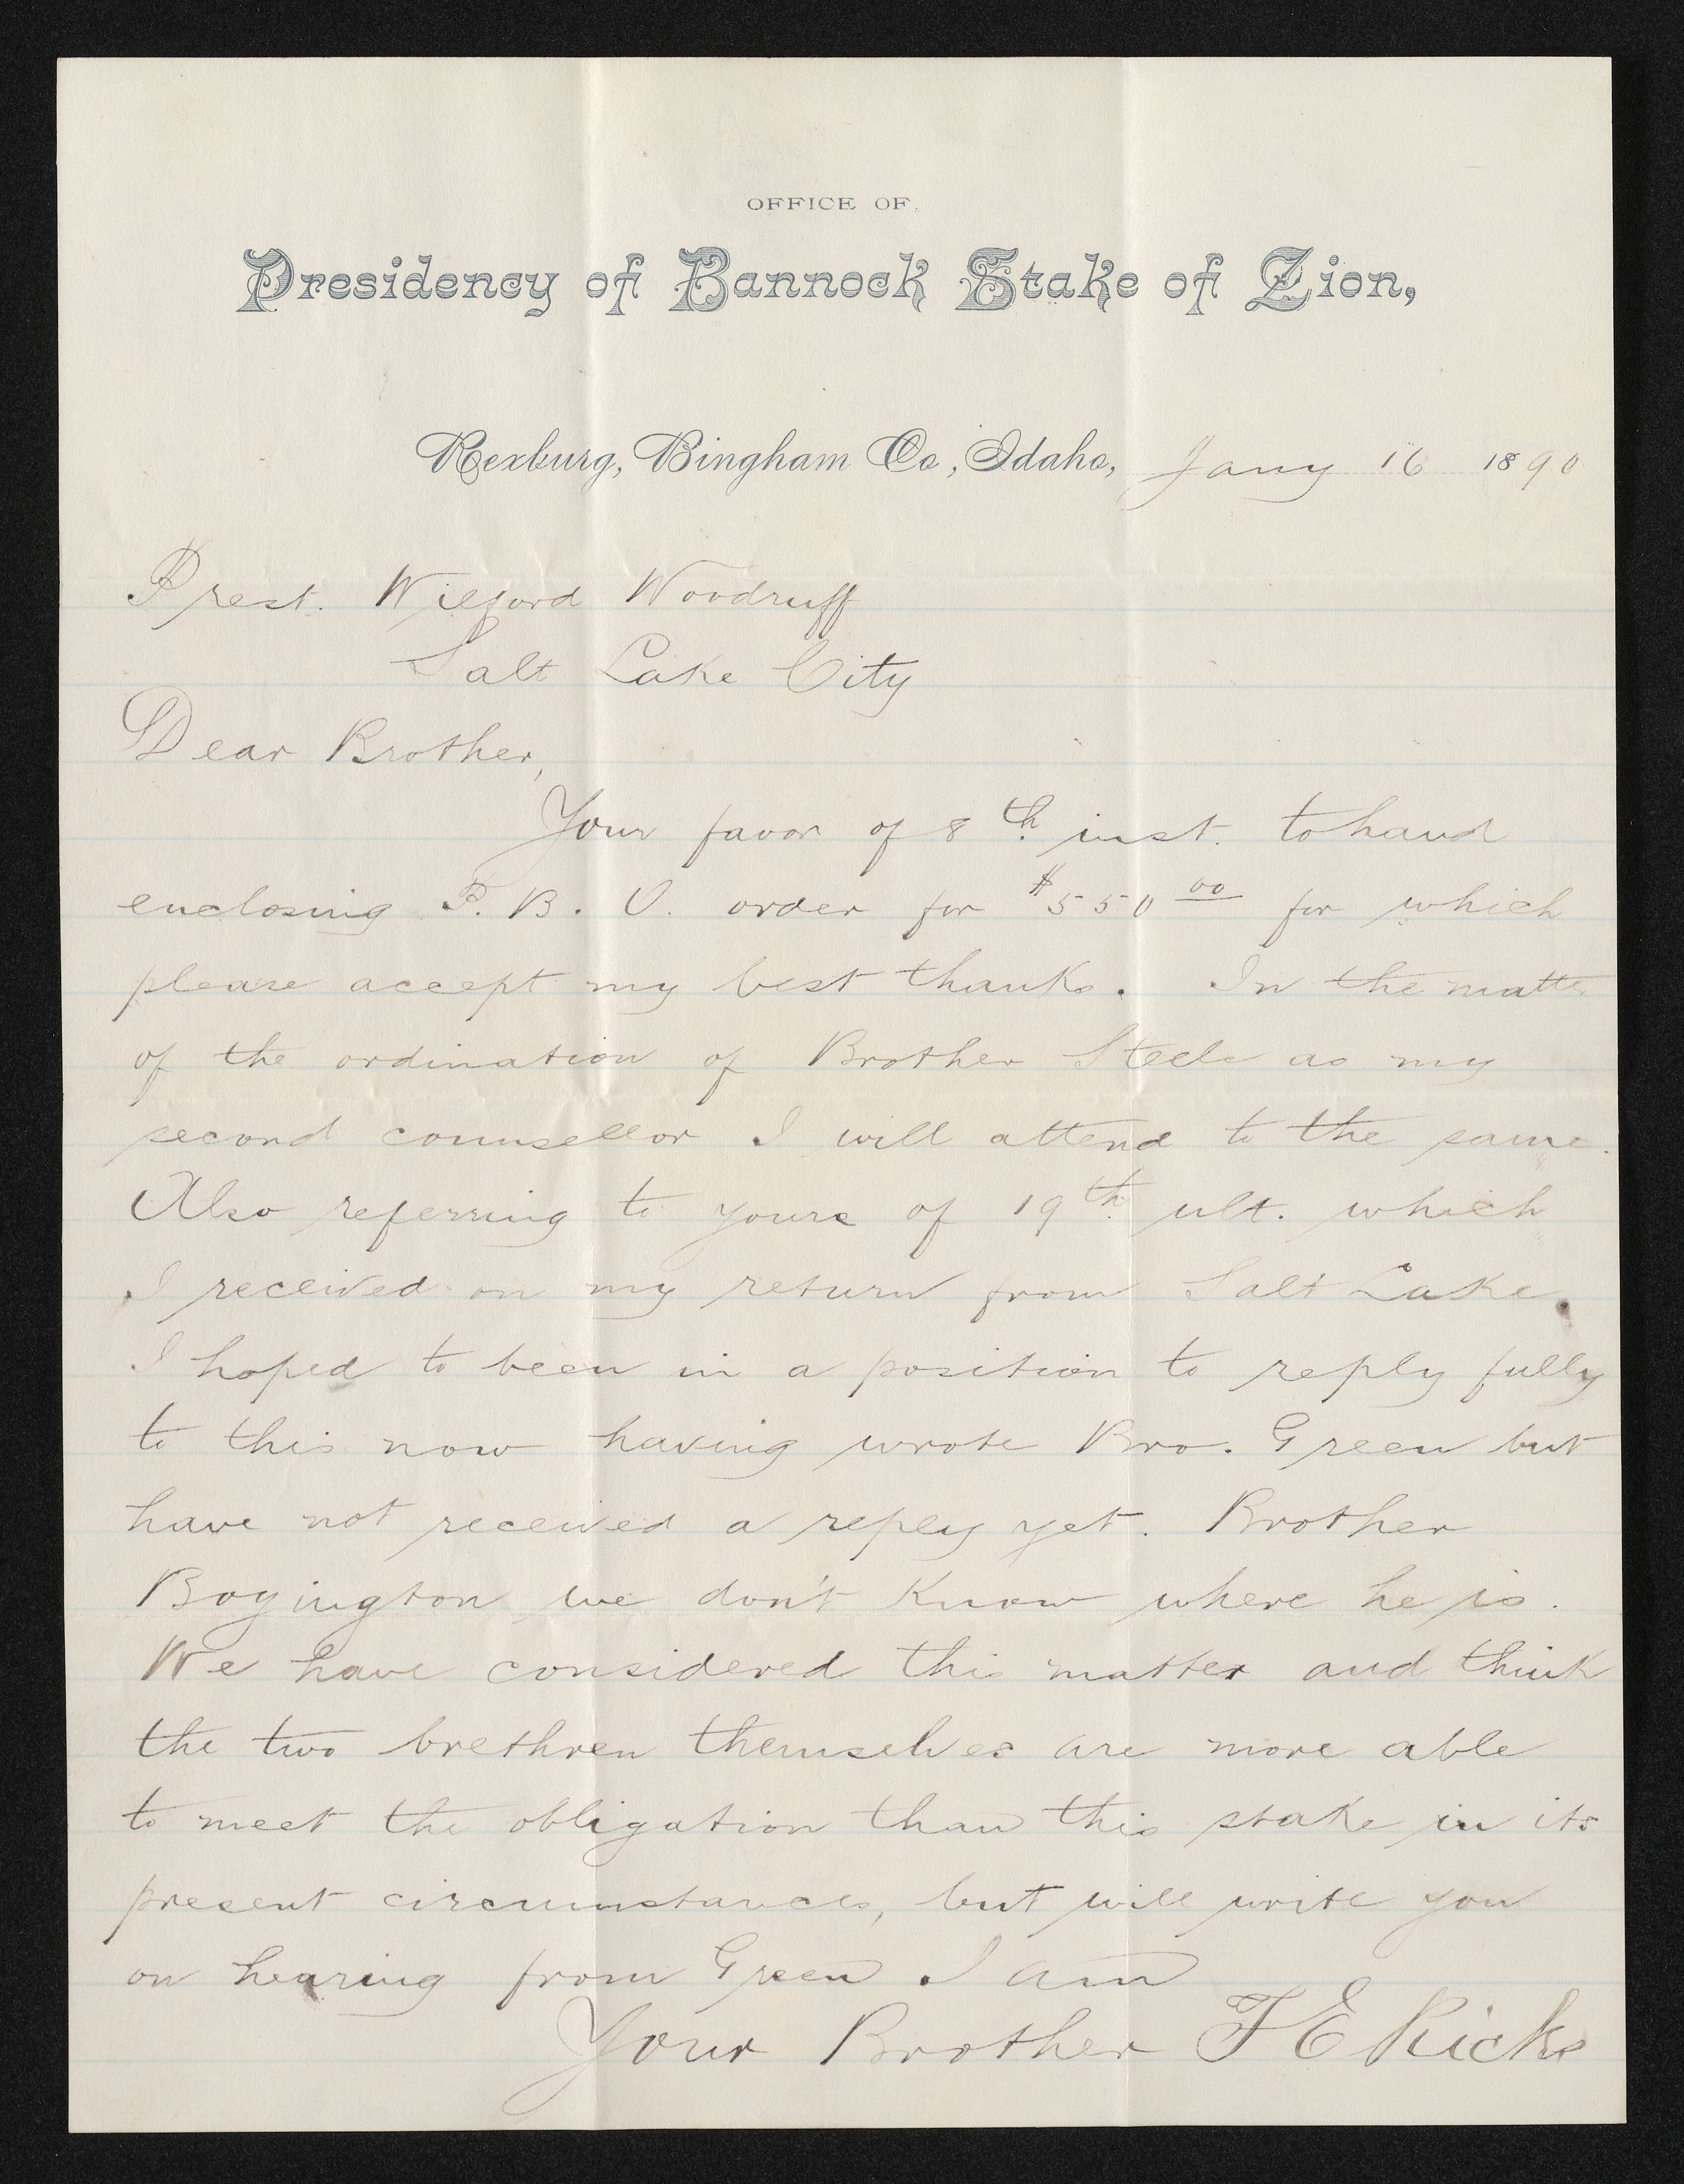 OFFICE OF
Presidency of Bannock Stake of Zion,
Rexburg, Bingham Co., Idaho, Jany 16 1890
Prest. Wilford Woodruff
Salt Lake City
Dear Brother,
Your favor of 8th inst. to hand
enclosing P. B. O. order for $550 00 for which
please accept my best thanks. In the matter
of the ordination of Brother Steele as my
second counsellor I will attend to the same.
Also referring to yours of 19th ult. which
I received on my return from Salt Lake.
I hoped to been in a position to reply fully
to this now having wrote Bro. Green but
have not received a reply yet. Brother
Boyington we don't know where he is.
We have considered this matter and think
the two brethren themselves are more able
to meet the obligation than this stake in its
present circumstances, but will write you
on hearing from Green. I am
Your Brother T E Ricks